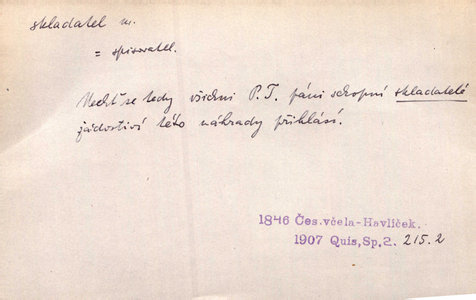 skladatel m.
= spisovatel.
Nechť se tedy všichni P. T. páni schopní skladatelé
žádostiví této náhrady přihlásí.
1846 Čes.včela-Havlíček.
1907 Quis,Sp.2. 215.2